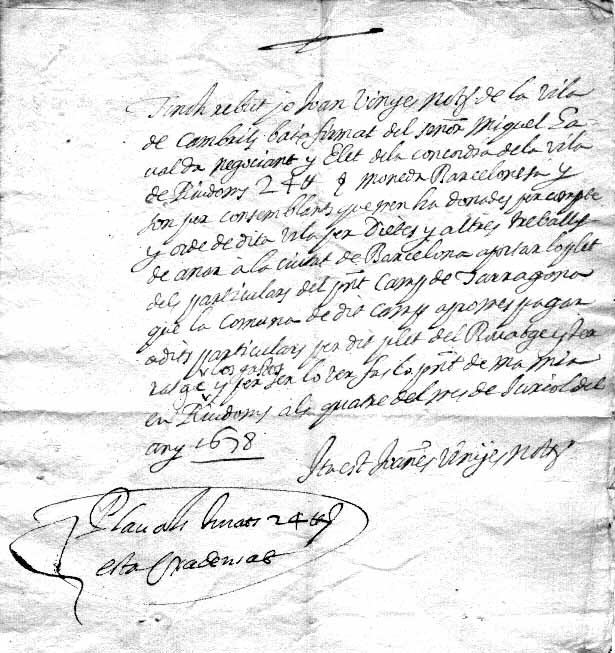 Tinch rebut jo Joan Vinyes notʳ de la vila
de Cambrils baix firmat del señor Miquel Ça
valda negociant y Elet dela concordia dela vila
de Riudoms 24 ₶ moneda Barcelonesa y
son per consemblants que men ha donades per compte
y orde de dita vila per Dietes y altres treballs
de anar à la ciutat de Barcelona aportar lo plet
del particulars del pñt Camp de Tarragona
que la Comuna de dit camp a pagar
adits particulars per dit plet del
ratge y los gastos per ser lo ver fas lo pñt de ma mia
en Riudoms als quatre del mes de Juriol del
any 1678
Ita est Joañes Vinyes notʳ
24 ₶
esta